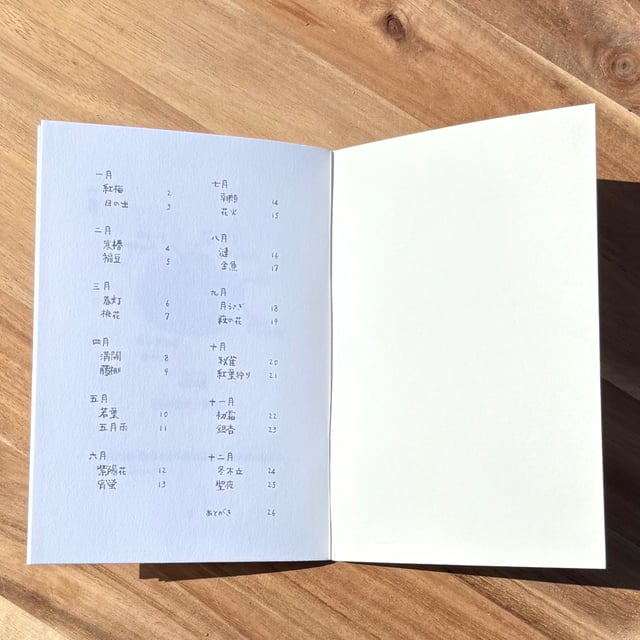 一月
紅梅 2
日の出 3
二月
寒椿 4
福豆 5
三月
春灯 6
桃花 7
四月
満開 8
藤棚 9
五月
若葉 10
五月雨 11
六月
紫陽花 12
宵蛍 13
七月
朝顔 14
花火 15
八月
漣 16
金魚 17
九月
月うさぎ 18
萩の花 19
十月
秋雀 20
紅葉狩り 21
十一月
初霜 22
銀杏 23
十二月
冬木立 24
聖夜 25
あとがき 26